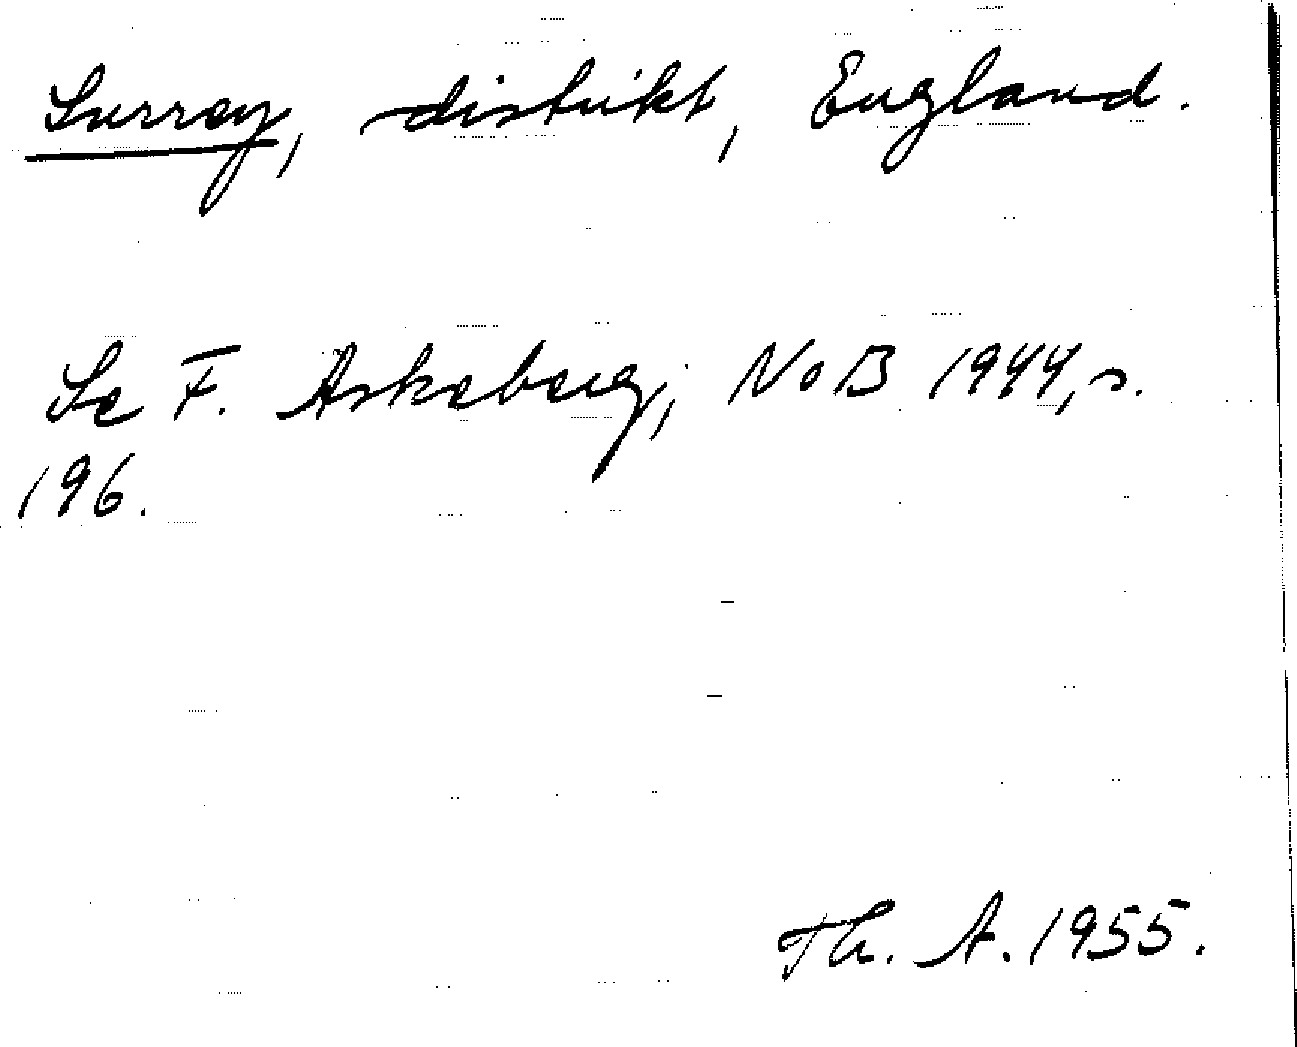 Surrey, distrikt, England.
Se F. Askeberg, NoB 1944, s.
196.
Th. A. 1955.